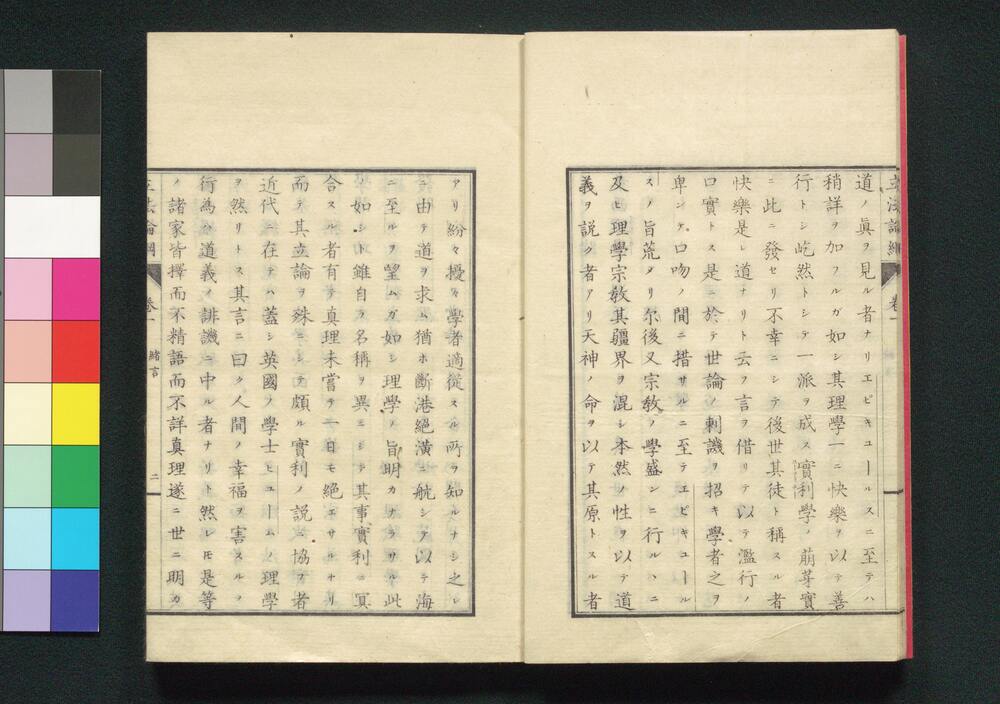 道ノ眞ヲ見ル者ナリエピキユールスニ至テハ
稍詳ヲ加フルガ如シ其理學一ニ快樂ヲ以テ善
行トシ屹然トシテ一派ヲ成ス實利學ノ萠芽實
ニ此ニ發セリ不幸ニシテ後世其徒ト稱スル者
快樂是レ道ナリト云フ言ヲ借リテ以テ濫行ノ
口實トス是ニ於テ世論ノ刺譏ヲ招キ學者之ヲ
卑ンテ口吻ノ間ニ措サルニ至テエピキユール
スノ旨荒タリ尓後又宗教ノ學盛ンニ行ルハニ
及ヒ理學宗教其疆界ヲ混シ本然ノ性ヲ以テ道
義ヲ説ク者アリ天神ノ命ヲ以テ其原トスル者
立法論綱
卷一
緒言
二
アリ紛々擾々學者適從スル所ヲ知ルナシ之レ
ニ由テ道ヲ求ム猶ホ斷港絕潢ニ航シテ以テ海
ニ至ルヲ望ムガ如シ理學ノ旨明カナラサル此
ノ如シト雖自ラ名稱ヲ異ニシテ其事實利ニ冥
合スル者有テ真理未嘗テ一日モ絕エサルナリ
而テ其立論ヲ殊ニシテ頗ル實利ノ説ニ協フ者
近代ニ在テハ蓋シ英國ノ學士ヒユームノ理學
ヲ然リトス其言ニ曰ク人間ノ幸福ヲ害スルノ
行為ハ道義ノ誹譏ニ中ル者ナリト然レ𪜈是等
ノ諸家皆擇而不精語而不詳真理遂ニ世ニ明カ